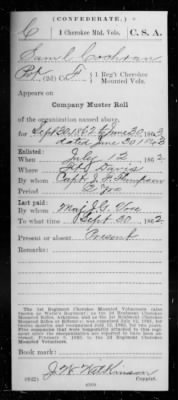 (CONFEDERATE.)
C | 1 Cherokee Mtd. Vols. | C. S. A.
Saml Cochran
Pvt, (2d) Co. F, 1 Reg't Cherokee Mounted Vols.
Appears on
Company Muster Roll
of the organization named above,
for Sept 30, 1862, to June 30, 1863
dated June 30 1863
Enlisted:
When July 12, 1862
Where Ft. Davis
By whom Capt. J. F. Thompson
Period 2 yrs
Last paid:
By whom Maj. J. C. Vore
To what time Sept 30, 1862
Present or absent Present
Remarks:
The 1st Regiment Cherokee Mounted Volunteers (also
Book mark:
J. W. Watkinson
(642) Copyist.